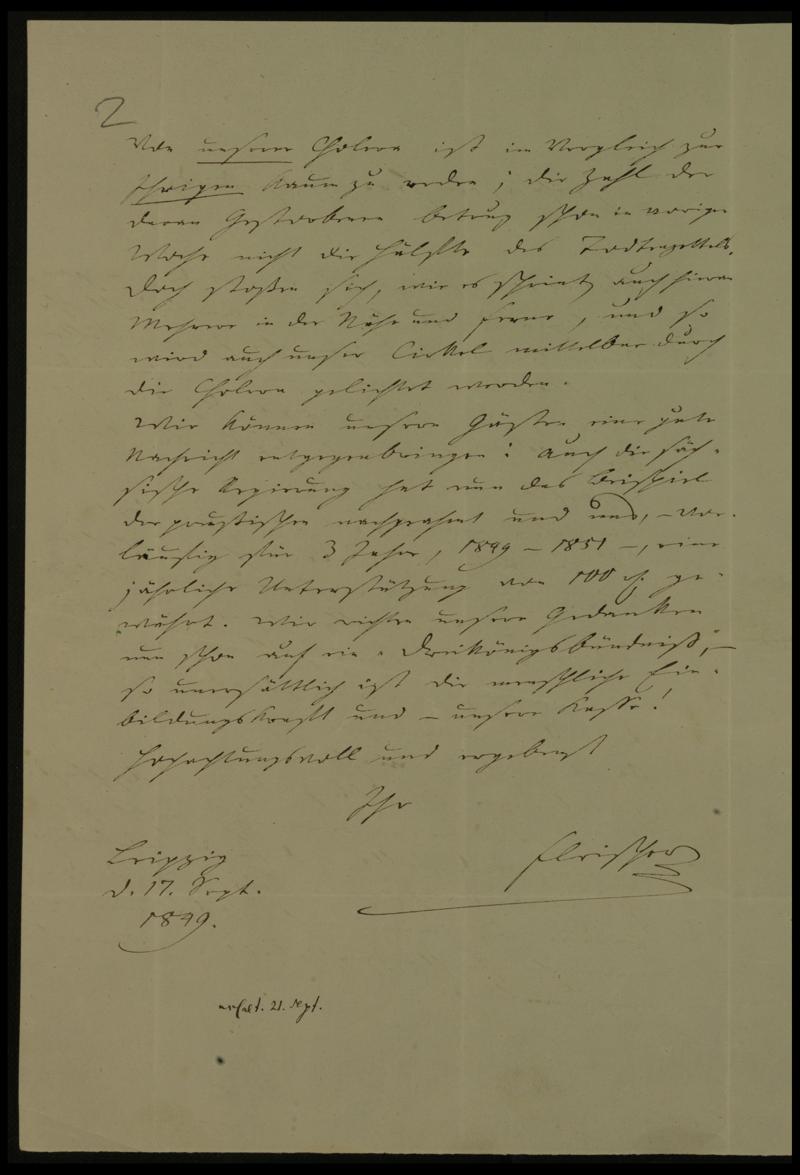 2
Von unserer Cholera ist im Vergleich zur
Ihrigen kaum zu reden; die Zahl der
daran Gestorbenen betrug schon in voriger
Woche nicht die Hälfte des Todtenzettels.
Doch stoßen sich, wie es scheint, auch hieran
Mehrere in der Nähe und Ferne, und so
wird auch unser Cirkel mittelbar durch
die Cholera gelichtet werden.
Wir können unsern Gästen eine gute
Nachricht entgegenbringen: auch die säch-
sische Regierung hat nun das Beispiel
der preußischen nachgeahmt und uns, – vor-
läufig für 3 Jahre, 1849 – 1851 –, eine
jährliche Unterstützung von 100 ge-
währt. Wir richten unsere Gedanken
nun schon auf ein „Dreikönigsbündniß“, –
so unersättlich ist die menschliche Ein-
bildungskraft und – unsere Kasse!
Hochachtungsvoll und ergebenst
Ihr
Fleischer
Leipzig
d. 17. Sept.
1849.
erhalt. 21. Sept.